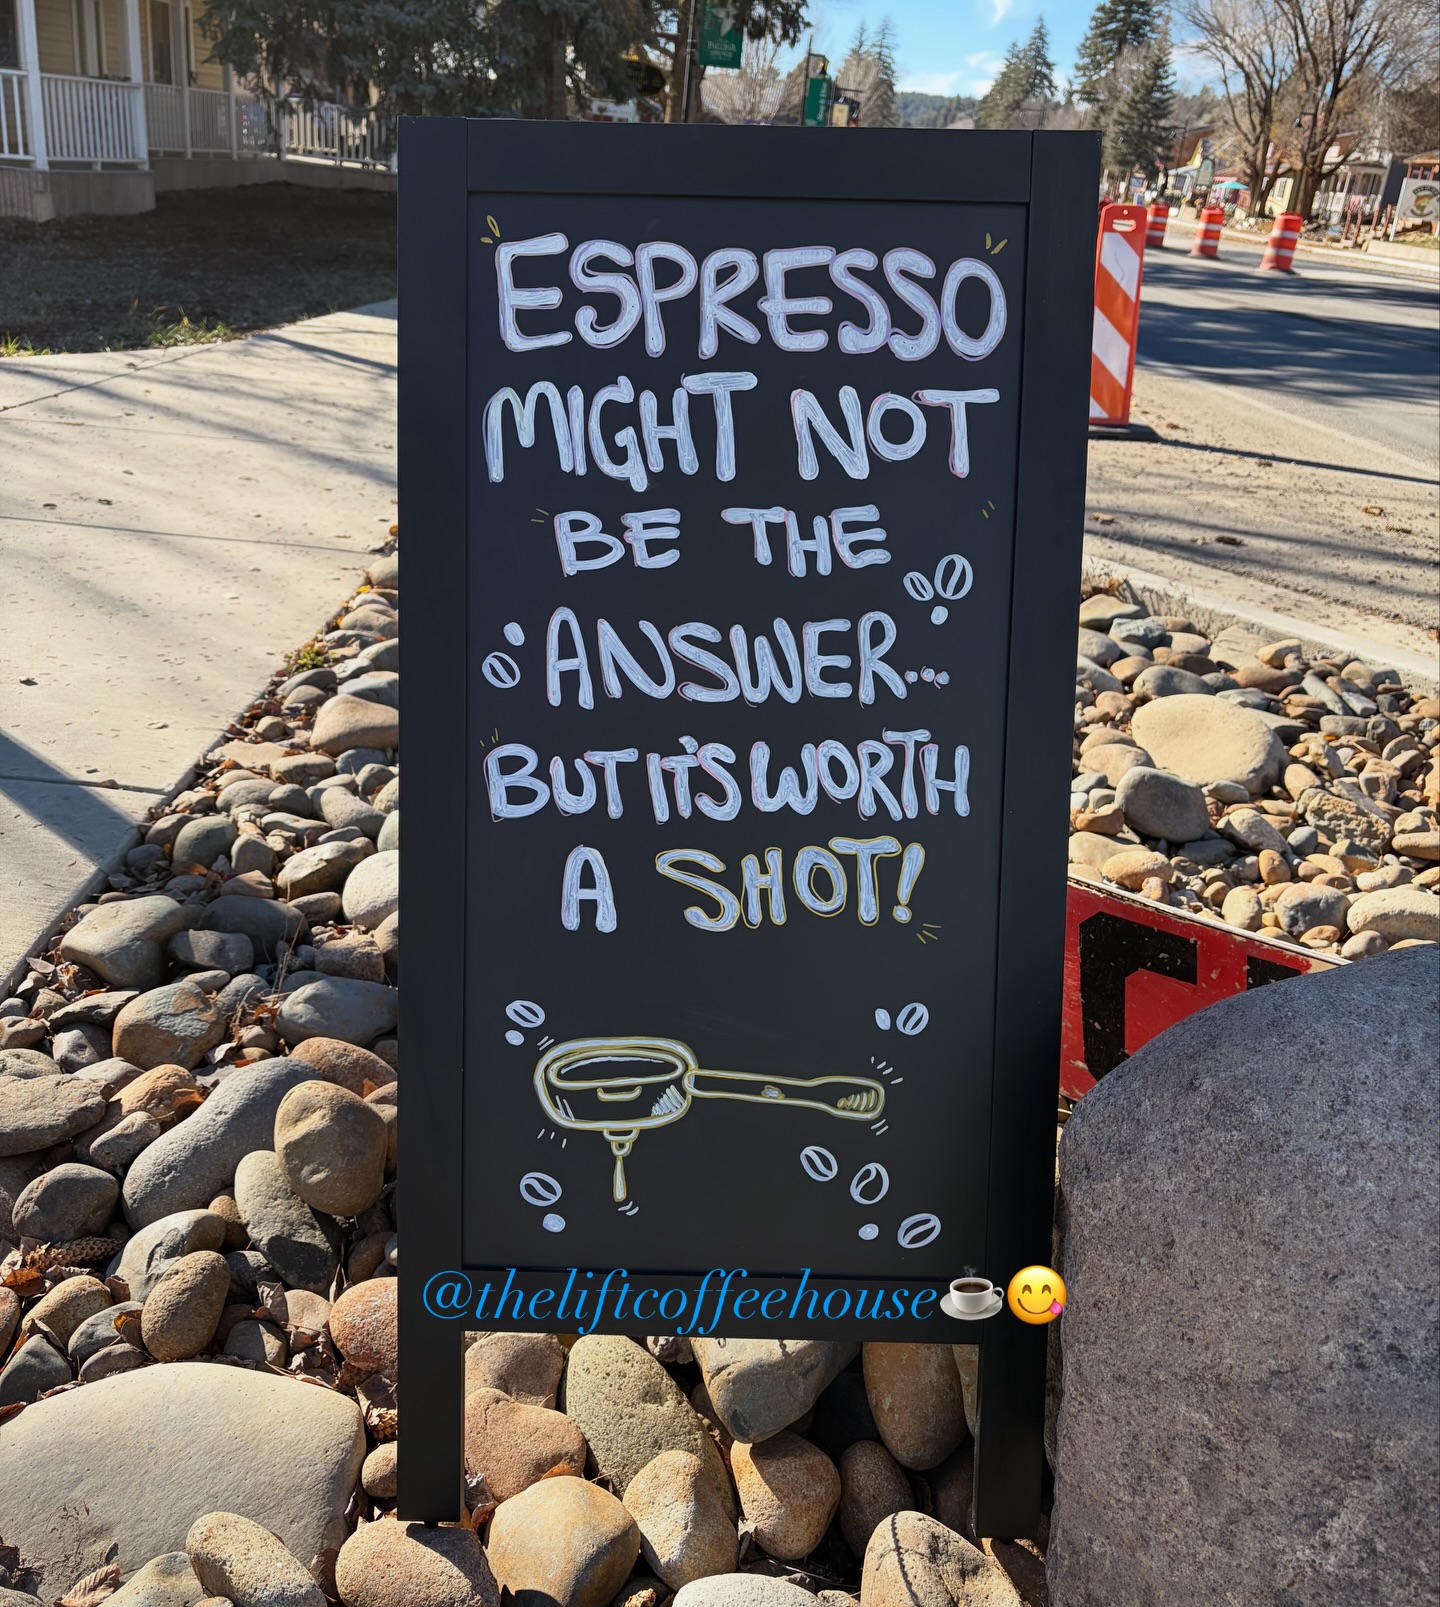 ESPRESSO
MIGHT NOT
BE THE
ANSWER...
BUT IT'S WORTH
A SHOT!
@theliftcoffeehouse☕😋